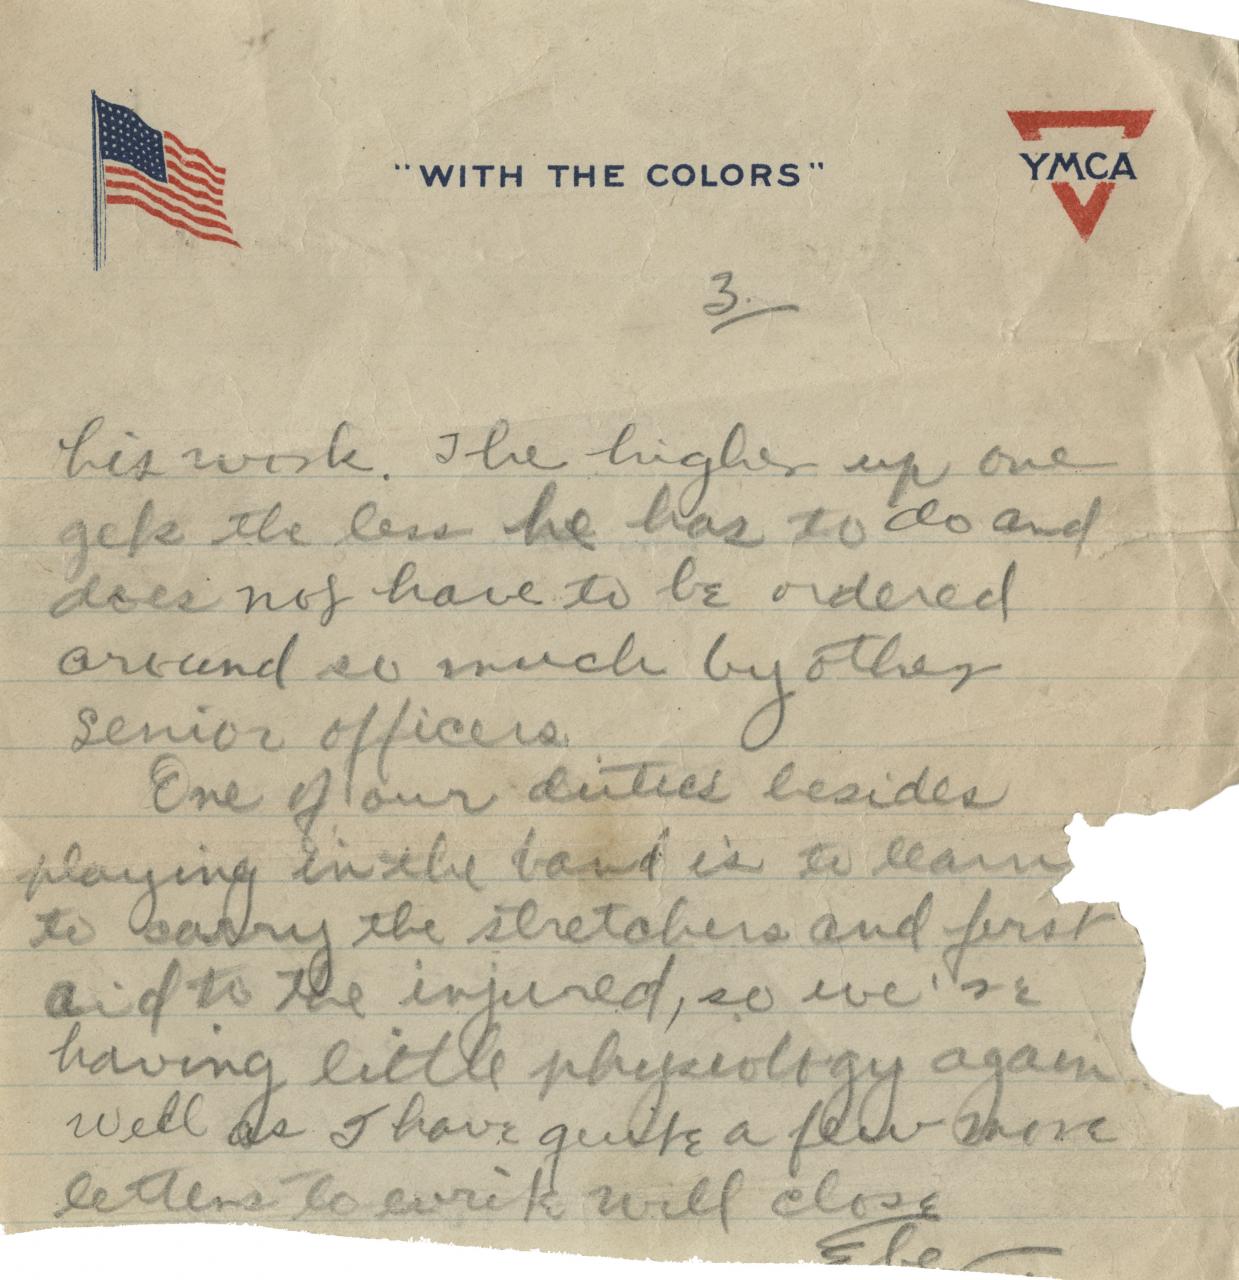 "WITH THE COLORS"
YMCA
3.
his work. The higher up one
gets the less he has to do and
does not have to be ordered
around so much by other
senior officers.
One of our duties besides
playing in the band is to learn
to carry the stretchers and first
aid to the injured, so we're
having little physiology again
well as I have quite a few more
letters to write will close
Ebe